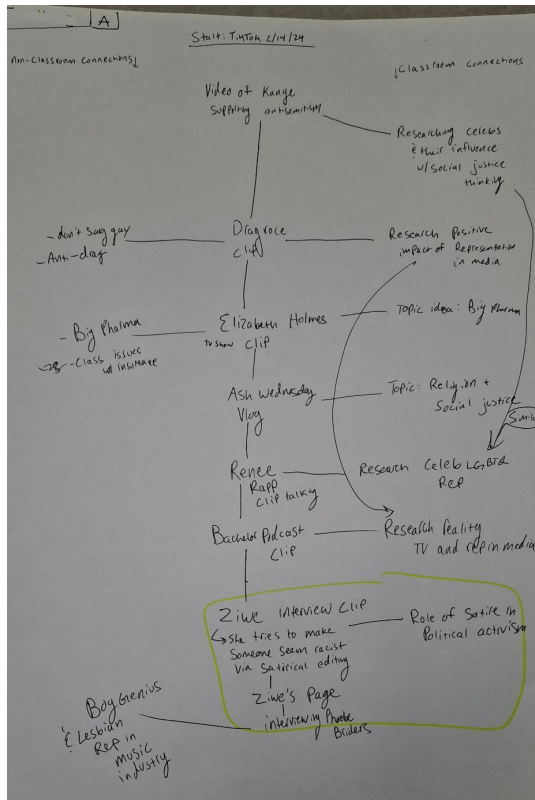 A
Start: TikTok 2/14/24
non-classroom connections↓
↓classroom connections
Video of Kanye
supporting antisemitism
Researching celebs
& their influence
w/social justice
thinking
- don't say gay
- Anti-drag
Dragrace
clip
Research positive
impact of Representation
in media
- Big Pharma
- class issues
w/ insurance
Elizabeth Holmes
TV show clip
Topic idea: Big Pharma
Ash Wednesday
Vlog
Topic: Religion +
Social justice
Renee
Rapp
clip talking
Research Celeb LGBTQ
Rep
Bachelor Podcast
clip
Research Reality
TV and rep in media
Ziwe interview clip
↳ She tries to make
someone seem racist
via satirical editing
Role of Satire in
Political activism
Ziwe's Page
interviewing Phoebe
Briders
Boy Genius
& Lesbian
Rep in
music
industry